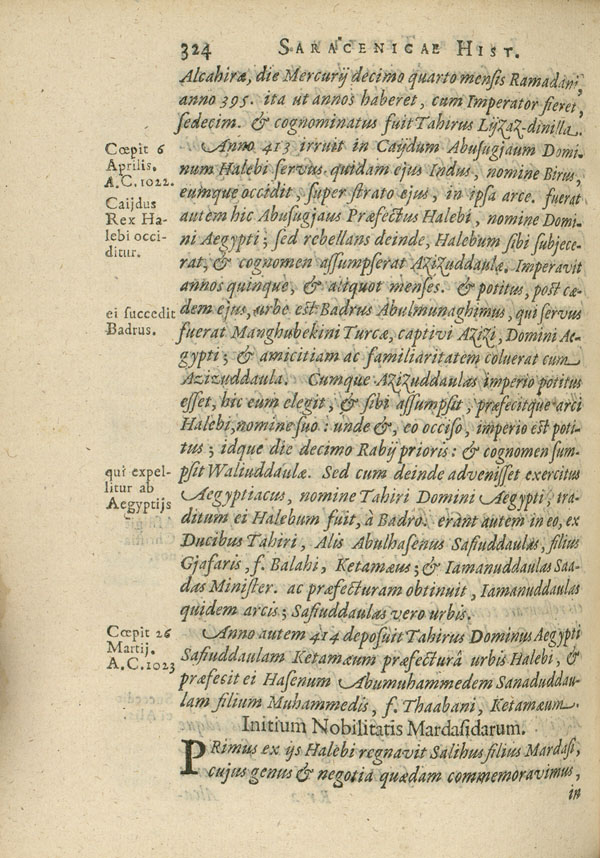 324 SARACENICAE HIST.
Alcahiræ, die Mercurij decimo quarto mensis Ramadani,
anno 395. ita ut annos haberet, cum Imperator fieret,
sedecim. & cognominatus fuit Tahirus Lijzaz-dinilla.
Cœpit 6
Aprilis.
A.C.1022.
Anno 413 irruit in Caijdum Abusugjaum Domi-
num Halebi servus quidam ejus Indus, nomine Birus,
eumque occidit, super strato ejus, in ipsa arce. fuerat
Caijdus
Rex Ha-
lebi occi-
ditur.
autem hic Abusugjaus Præfectus Halebi, nomine Domi-
ni Aegypti; sed rebellans deinde, Halebum sibi subjece-
rat, & cognomen assumpserat Azizuddaulæ. Imperavit
annos quinque, & aliquot menses. & potitus, post cæ-
ei succedit
Badrus.
dem ejus, urbe est Badrus Abulmunaghimus, qui servus
fuerat Manghubekini Turcæ, captivi Azizi, Domini Ae-
gypti; & amicitiam ac familiaritatem coluerat cum
Azizuddaula. Cumque Azizuddaulas imperio potitus
esset, hic eum elegit, & sibi assumpsit, præfecitque arci
Halebi, nomine suo: unde &, eo occiso, imperio est poti-
tus; idque die decimo Rabij prioris: & cognomen sum-
qui expel-
litur ab
Aegyptijs
psit Waliuddaulæ. Sed cum deinde advenisset exercitus
Aegyptiacus, nomine Tahiri Domini Aegypti, tra-
ditum ei Halebum fuit, à Badro. erant autem in eo, ex
Ducibus Tahiri, Alis Abulhasenus Safiuddaulas, filius
Gjafaris, f. Balahi, Ketamæus; & Iamanuddaulas Saa-
das Minister. ac præfecturam obtinuit, Iamanuddaulas
quidem arcis; Safiuddaulas vero urbis.
Cœpit 26
Martij.
A.C.1023
Anno autem 414 deposuit Tahirus Dominus Aegypti
Safiuddaulam Ketamæum præfecturâ urbis Halebi, &
præfecit ei Hasenum Abumuhammedem Sanaduddau-
lam filium Muhammedis, f. Thaabani, Ketamæum.
Initium Nobilitatis Mardasidarum.
PRimus ex ijs Halebi regnavit Salihus filius Mardasi,
cujus genus & negotia quædam commemoravimus,
in